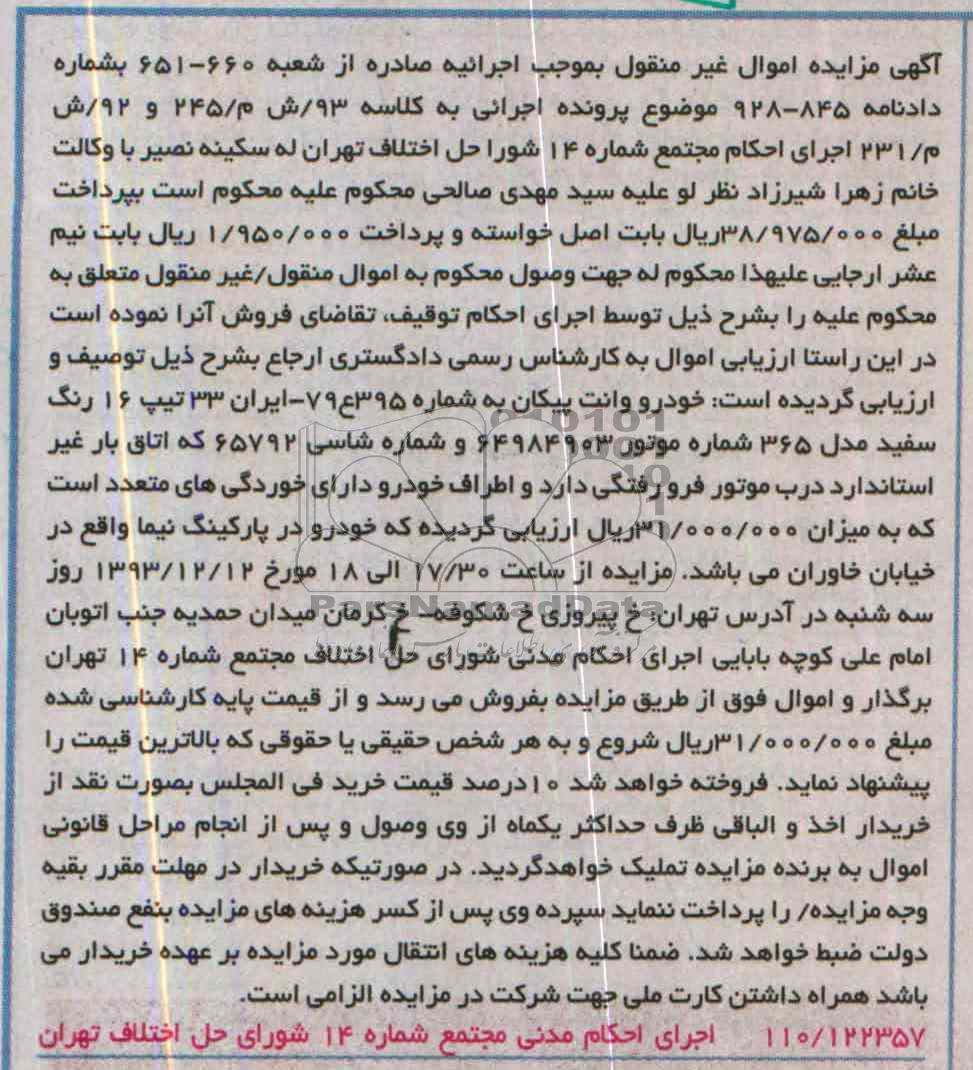 آگهی مزایده اموال غیر منقول بموجب اجرائیه صادره از شعبه ۶۶۰-۶۵۱ بشماره
دادنامه ۸۴۵-۹۲۸ موضوع پرونده اجرائی به کلاسه ۹۳/ش م/۲۴۵ و ۹۲/ش
م/۲۳۱ اجرای احکام مجتمع شماره ۱۴ شورا حل اختلاف تهران له سکینه نصیر با وکالت
خانم زهرا شیرزاد نظر لو علیه سید مهدی صالحی محکوم علیه محکوم است بپرداخت
مبلغ ۳۸/۹۷۵/۰۰۰ریال بابت اصل خواسته و پرداخت ۱/۹۵۰/۰۰۰ ریال بابت نیم
عشر ارجایی علیهذا محکوم له جهت وصول محکوم به اموال منقول/غیر منقول متعلق به
محکوم علیه را بشرح ذیل توسط اجرای احکام توقیف، تقاضای فروش آنرا نموده است
در این راستا ارزیابی اموال به کارشناس رسمی دادگستری ارجاع بشرح ذیل توصیف و
ارزیابی گردیده است: خودرو وانت پیکان به شماره ۳۹۵ع۷۹-ایران ۳۳ تیپ ۱۶ رنگ
سفید مدل ۳۶۵ شماره موتور ۶۴۹۸۴۹۰۳ و شماره شاسی ۶۵۷۹۲ که اتاق بار غیر
استاندارد درب موتور فرو رفتگی دارد و اطراف خودرو دارای خوردگی های متعدد است
که به میزان ۳۱/۰۰۰/۰۰۰ریال ارزیابی گردیده که خودرو در پارکینگ نیما واقع در
خیابان خاوران می باشد. مزایده از ساعت ۱۷/۳۰ الی ۱۸ مورخ ۱۳۹۳/۱۲/۱۲ روز
سه شنبه در آدرس تهران: خ پیروزی خ شکوفه- خ کرمان میدان حمدیه جنب اتوبان
امام علی کوچه بابایی اجرای احکام مدنی شورای حل اختلاف مجتمع شماره ۱۴ تهران
برگذار و اموال فوق از طریق مزایده بفروش می رسد و از قیمت پایه کارشناسی شده
مبلغ ۳۱/۰۰۰/۰۰۰ریال شروع و به هر شخص حقیقی یا حقوقی که بالاترین قیمت را
پیشنهاد نماید. فروخته خواهد شد ۱۰درصد قیمت خرید فی المجلس بصورت نقد از
خریدار اخذ و الباقی ظرف حداکثر یکماه از وی وصول و پس از انجام مراحل قانونی
اموال به برنده مزایده تملیک خواهدگردید. در صورتیکه خریدار در مهلت مقرر بقیه
وجه مزایده/ را پرداخت ننماید سپرده وی پس از کسر هزینه های مزایده بنفع صندوق
دولت ضبط خواهد شد. ضمنا کلیه هزینه های انتقال مورد مزایده بر عهده خریدار می
باشد همراه داشتن کارت ملی جهت شرکت در مزایده الزامی است.
۱۱۰/۱۲۲۳۵۷ اجرای احکام مدنی مجتمع شماره ۱۴ شورای حل اختلاف تهران
ParsNamadData